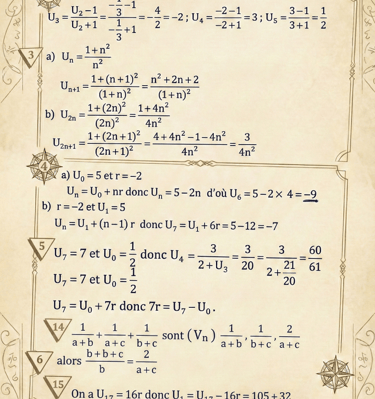 U₃ = (U₂−1)/(U₂+1) = (−1/3 −1)/(−1/3 +1) = −4/2 = −2 ; U₄ = (−2−1)/(−2+1) = 3 ; U₅ = (3−1)/(3+1) = 1/2
3 a) Uₙ = (1+n²)/n²
Uₙ₊₁ = (1+(n+1)²)/(1+n)² = (n²+2n+2)/(1+n)²
b) U₂ₙ = (1+(2n)²)/(2n)² = (1+4n²)/4n²
U₂ₙ₊₁ = (1+(2n+1)²)/(2n+1)² = (4+4n²−1−4n²)/4n² = 3/4n²
4 a) U₀ = 5 et r = −2
Uₙ = U₀ + nr donc Uₙ = 5−2n d'où U₆ = 5−2× 4 = −9
b) r = −2 et U₁ = 5
Uₙ = U₁ + (n−1) r donc U₇ = U₁ + 6r = 5−12 = −7
5 U₇ = 7 et U₀ = 1/2 donc U₄ = 3/(2+U₃) = 3/20 = 3/(2+21/20) = 60/61
U₇ = 7 et U₀ = 1/2
U₇ = U₀ + 7r donc 7r = U₇ − U₀ .
14 1/(a+b) + 1/(a+c) + 1/(b+c) sont (Vₙ) 1/(a+b) , 1/(b+c) , 2/(a+c)
6 alors (b+b+c)/b = 2/(a+c)
15 On a U₁₇ = 16r donc U₁ = − 16r = 105 + 32